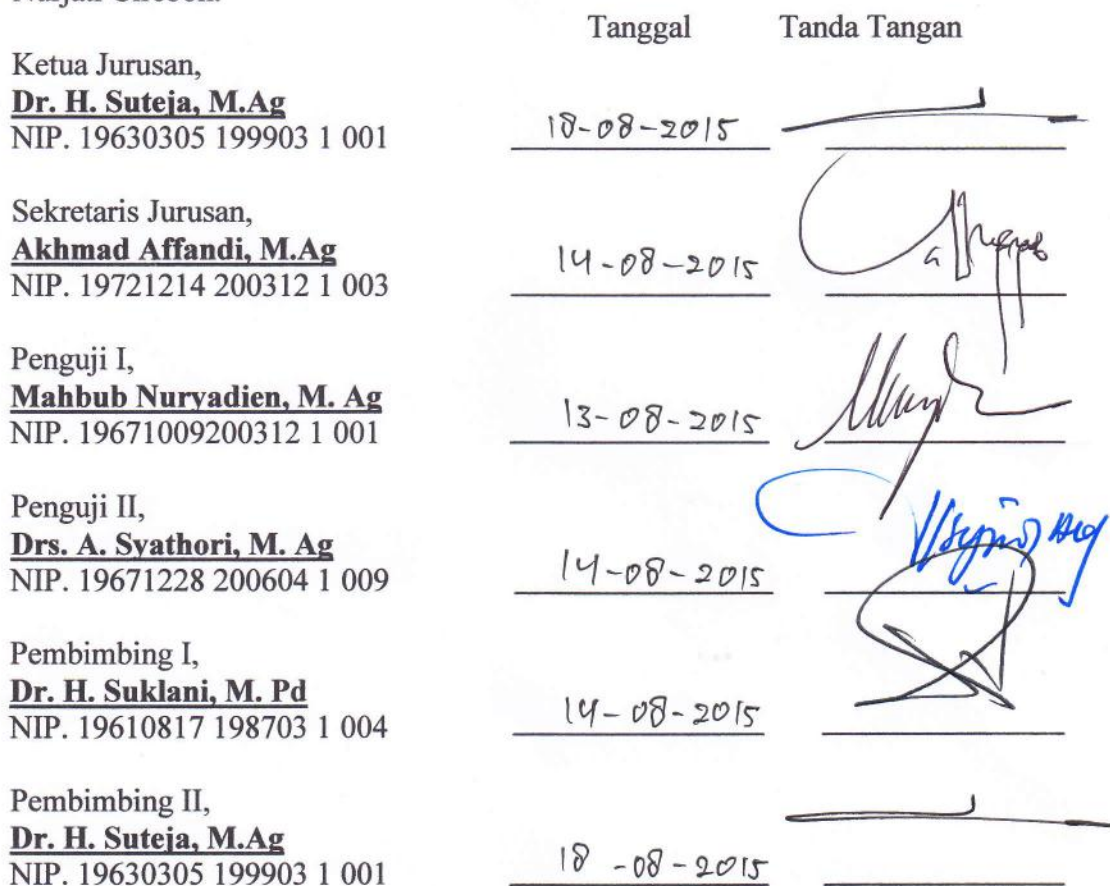 Tanggal Tanda Tangan
Ketua Jurusan,
Dr. H. Suteja, M.Ag
NIP. 19630305 199903 1 001
18-08-2015
Sekretaris Jurusan,
Akhmad Affandi, M.Ag
NIP. 19721214 200312 1 003
14-08-2015
Penguji I,
Mahbub Nuryadien, M. Ag
NIP. 19671009200312 1 001
13-08-2015
Penguji II,
Drs. A. Syathori, M. Ag
NIP. 19671228 200604 1 009
14-08-2015
Pembimbing I,
Dr. H. Suklani, M. Pd
NIP. 19610817 198703 1 004
14-08-2015
Pembimbing II,
Dr. H. Suteja, M.Ag
NIP. 19630305 199903 1 001
18-08-2015